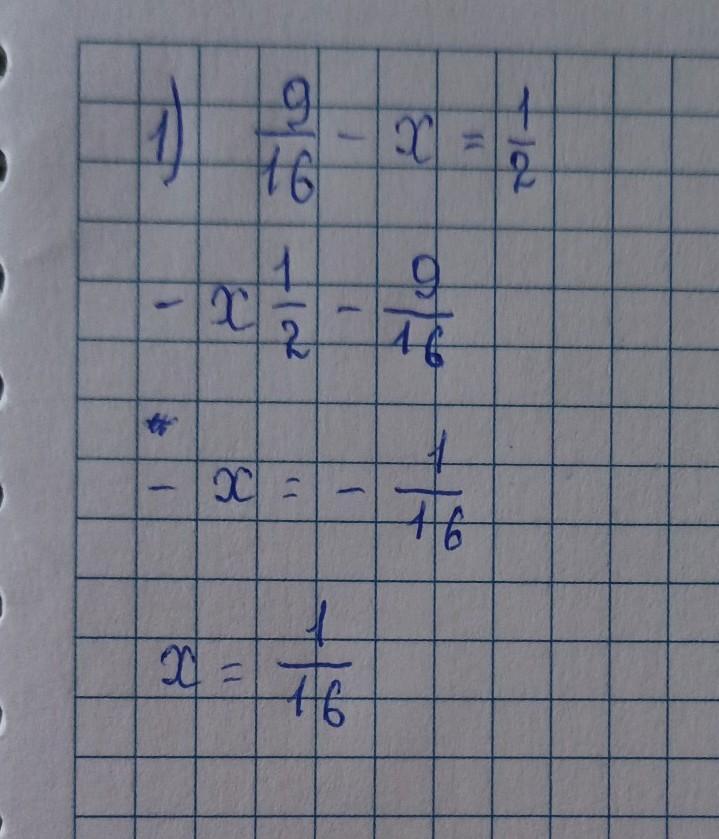 1) 9/16 - x = 1/2
- x 1/2 - 9/16
- x = - 1/16
x = 1/16